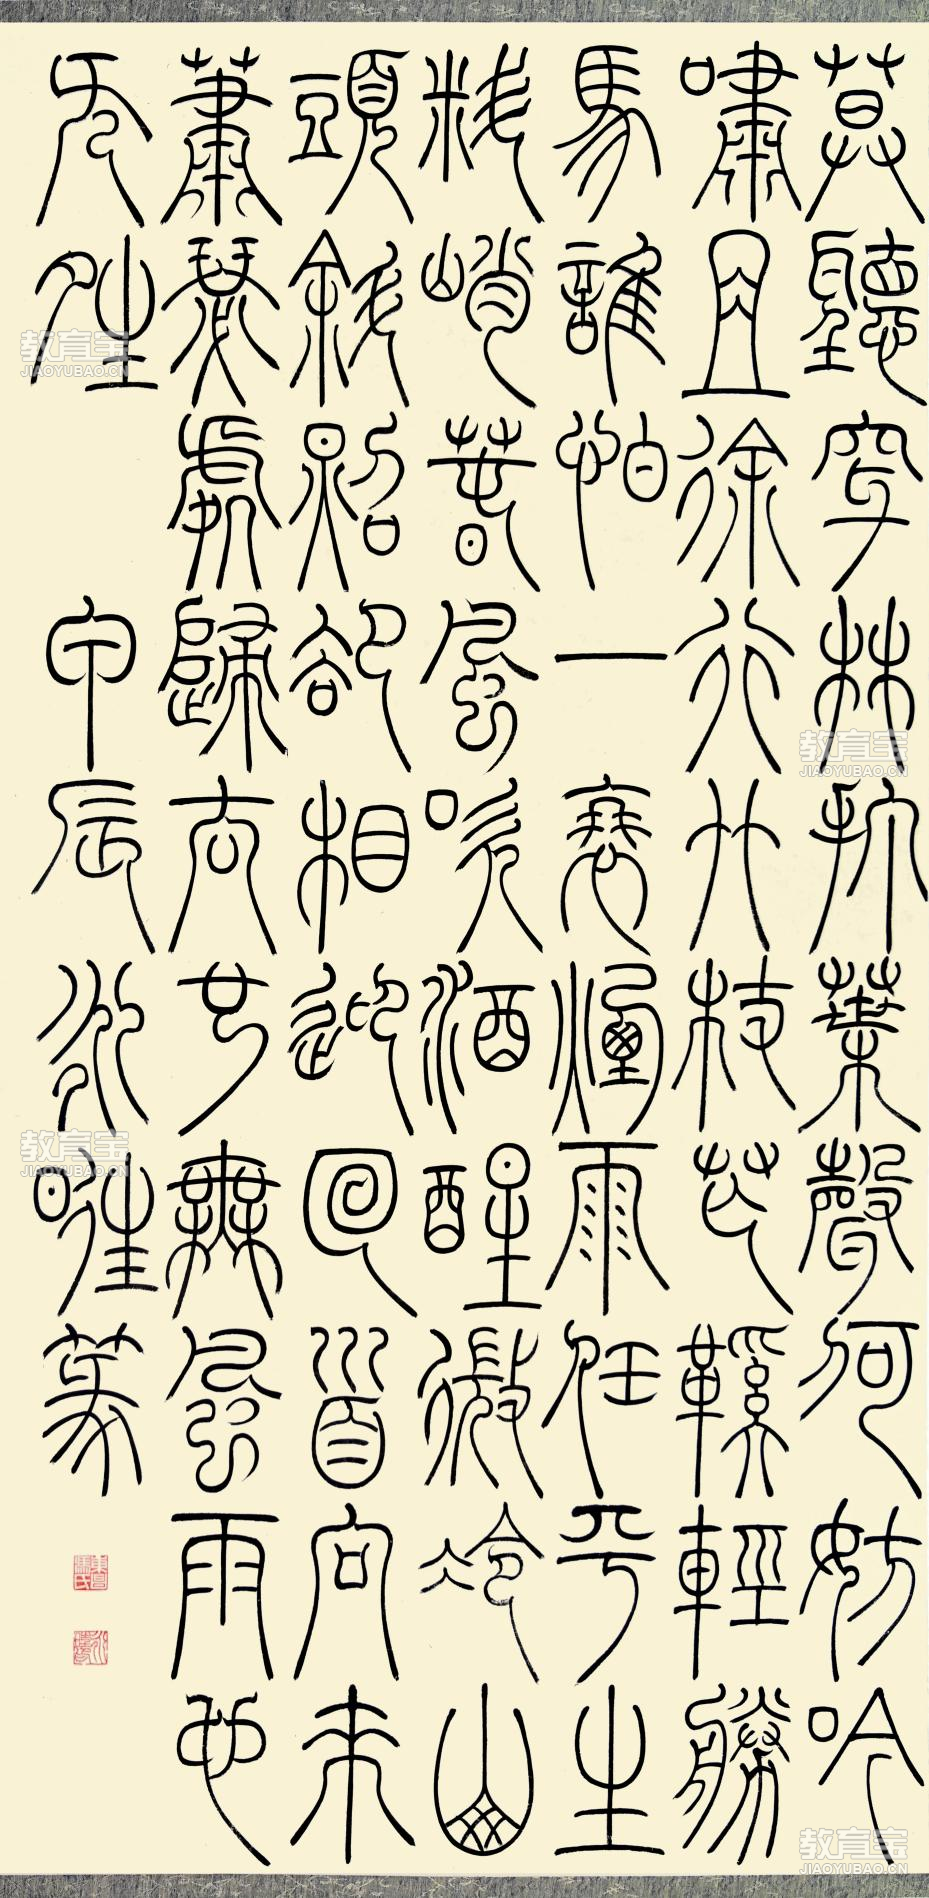 莫聽穿林打葉聲何妨吟
嘯且徐行竹杖芒鞋輕勝
馬誰怕一蓑煙雨任平生
料峭春風吹酒醒微冷山
頭斜照卻相迎回首向來
蕭瑟處歸去也無風雨也
无夝
甲辰永篆
教育宝
JIAOYUBAO.CN
教育宝
JIAOYUBAO.CN
教育宝
JIAOYUBAO.CN
教育宝
JIAOYUBAO.CN